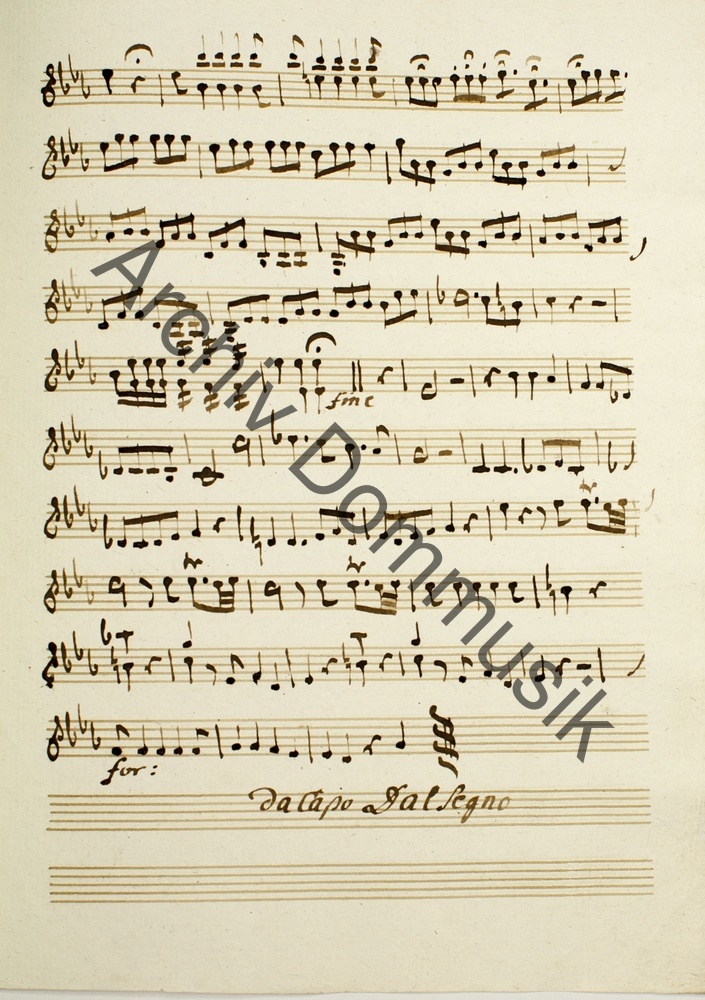 Archiv Dommusik
fine
for:
Da Capo Dal Segno